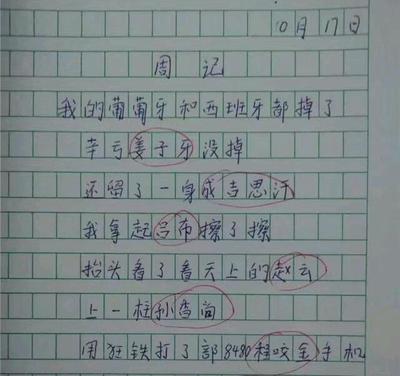 10月17日
周记
我的葡萄牙和西班牙都掉了
幸亏姜子牙没掉
还留了一身成吉思汗
我拿起吕布擦了擦
抬头看了看天上的赵云
上一柱孙香
用狂铁打了部8480程咬金手机